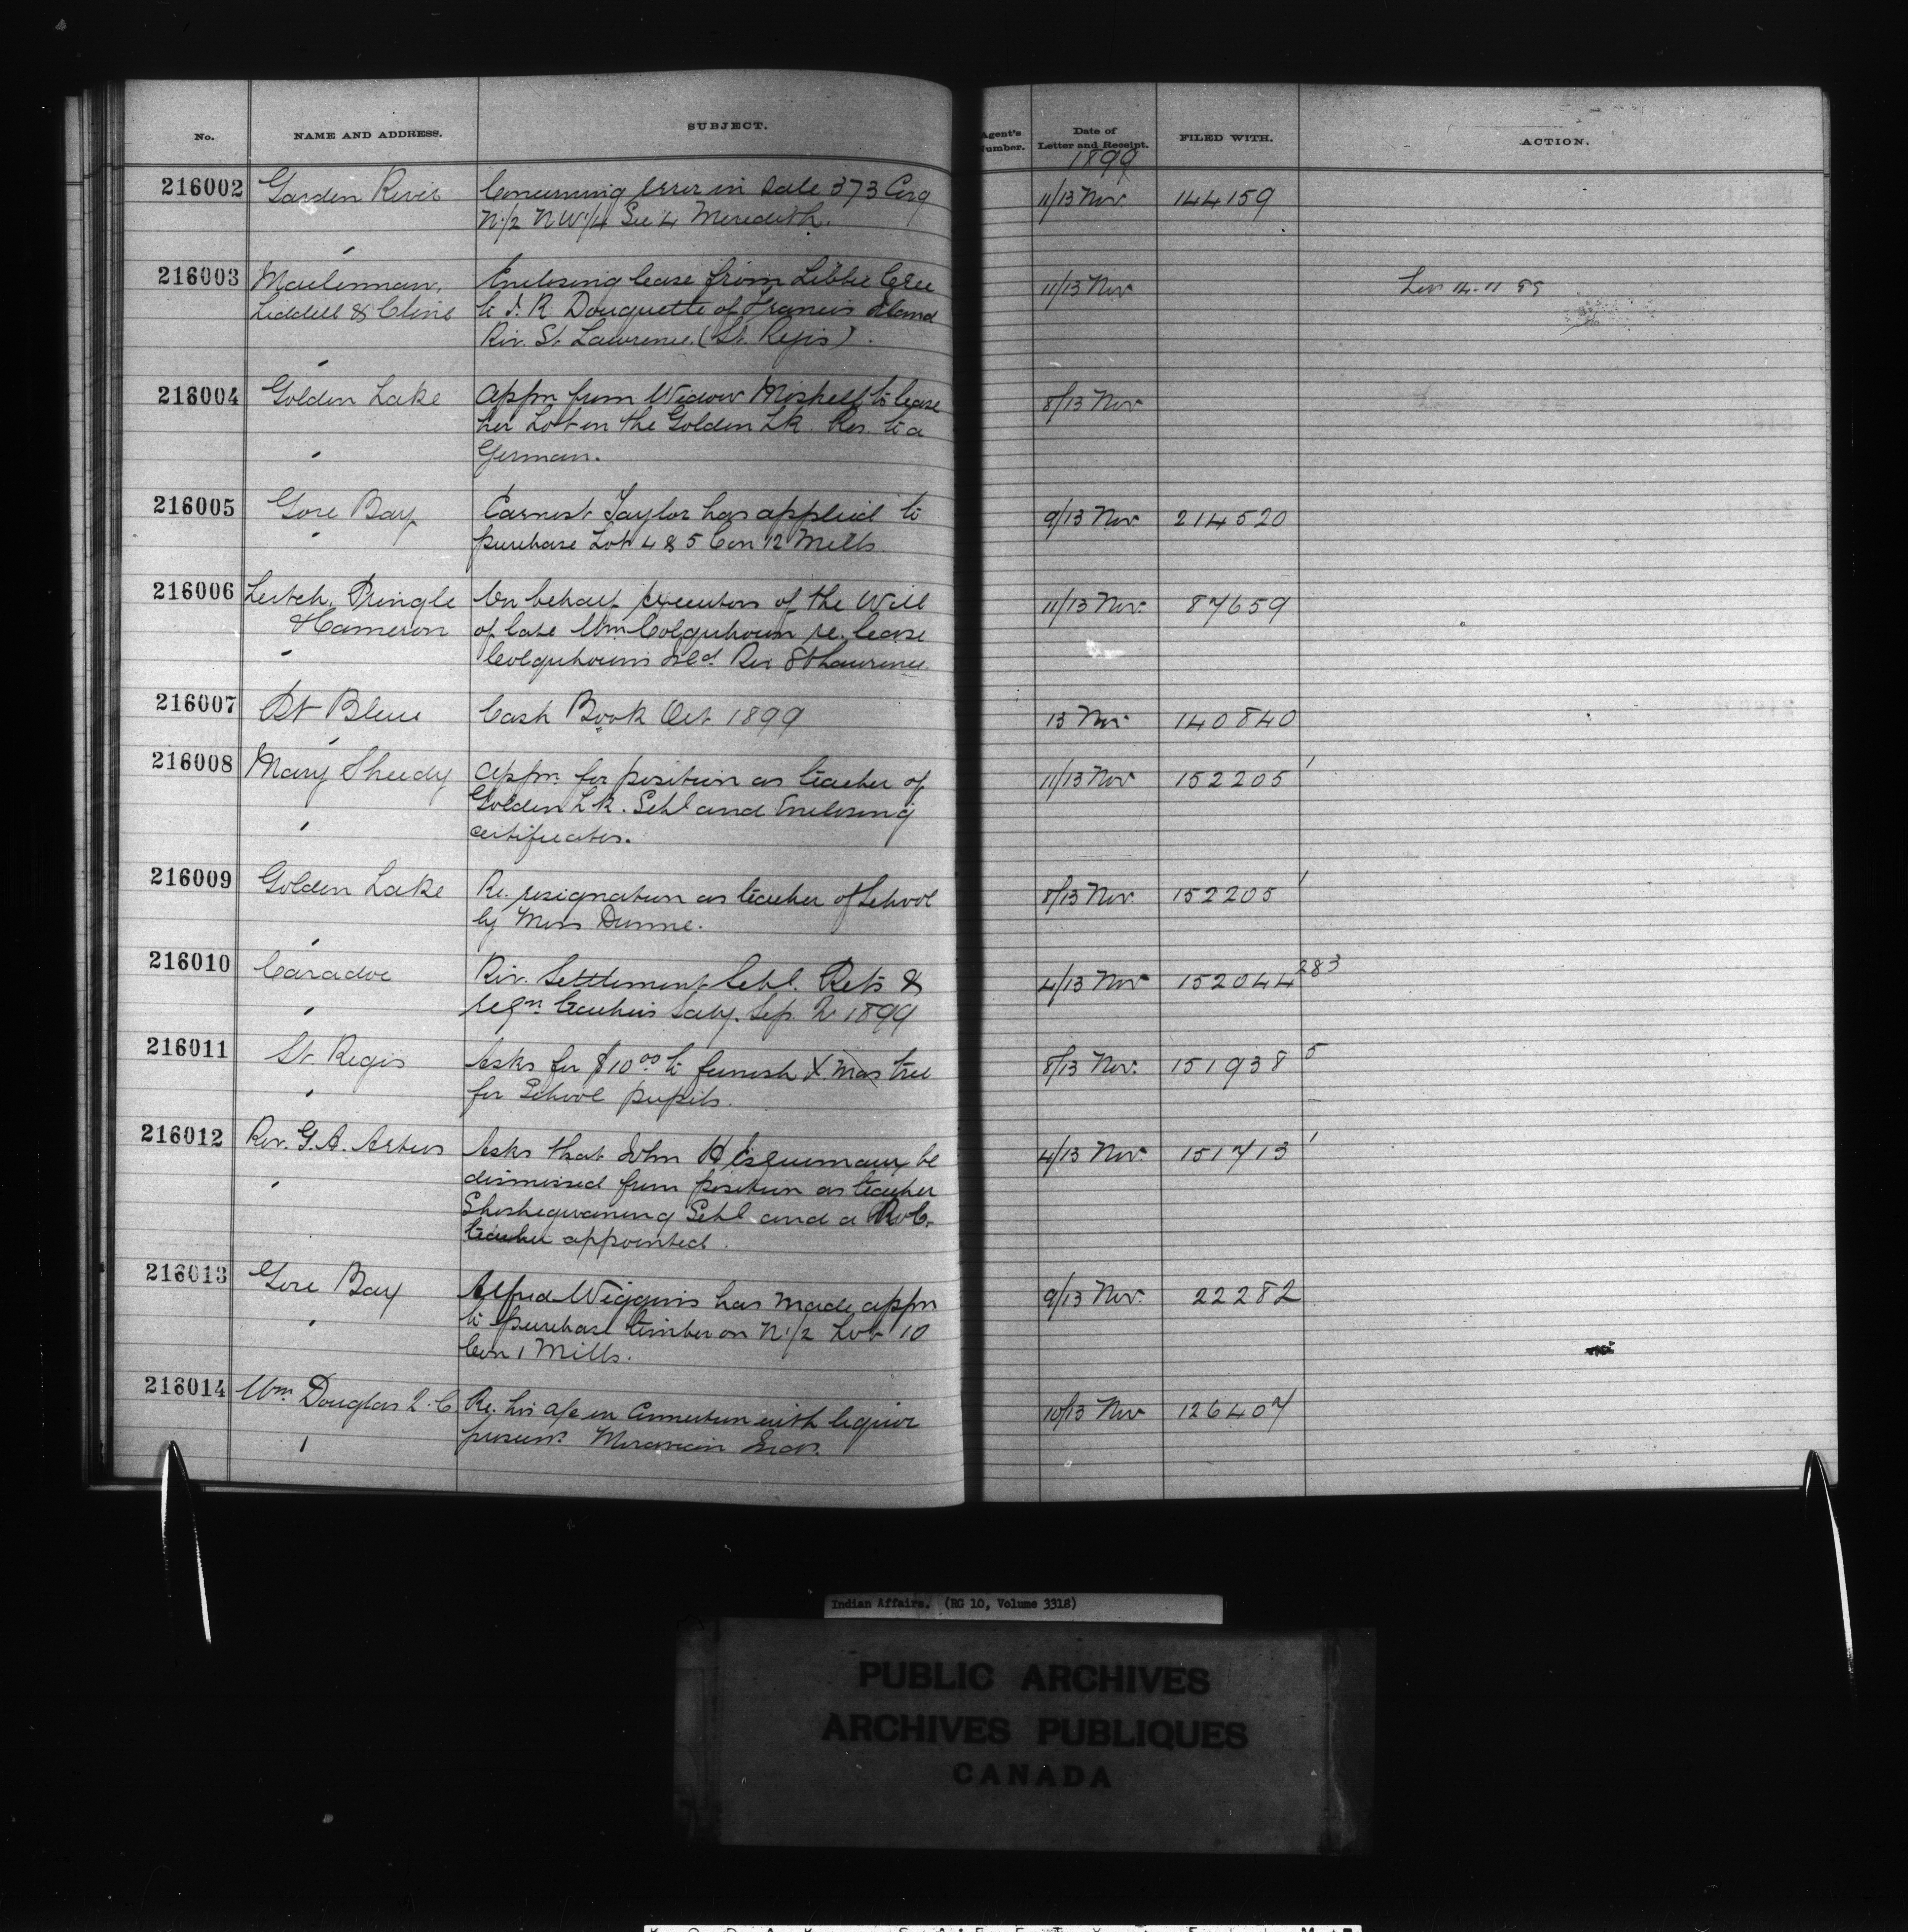 No. NAME AND ADDRESS. SUBJECT. Agent's Number. Date of Letter and Receipt. FILED WITH. ACTION.
1899
216002 Garden River Concerning Error in Sale 373 Corg 11/13 Nov 144159
N.1/2 N.W.1/4 Sec 4 Meredith.
216003 Maclennan, Enclosing lease from Libbie Cree 11/13 Nov 14-11 99
Liddell & Cline to J. R Douquette of Francis Island
Riv. St Lawrence. (St. Regis).
216004 Golden Lake Appn from Widow Mishell to lease 8/13 Nov
her Lot on the Golden Lk. Res. to a
German.
216005 Gore Bay Earnest Taylor has applied to 9/13 Nov 214520
purchase Lot 4 & 5 Con 12 Mills
216006 Leitch, Pringle On behalf executors of the Will 11/13 Nov. 87659
& Cameron of late Wm Colquhoun re. lease
Colquhouns Isld. Riv St Lawrence
216007 Pt Bleue Cash Book Oct 1899 13 Nov 140840
216008 Mary Sheedy Appn. for position as teacher of 11/13 Nov 152205 1
Golden Lk. Schl and Enclosing
certificates.
216009 Golden Lake Re. resignation as teacher of School 8/13 Nov 152205 1
by Miss Dunne.
216010 Caradoc Riv. Settlement Schl. Rets & 4/13 Nov 152044 283
reqn teachers Saly. Sep. Qr 1899
216011 St. Regis Asks for $10.00 to furnish X mas tree 8/13 Nov. 151938 5
for School pupils.
216012 Rev. G. A. Artus Asks that John H Esquimaux be 4/13 Nov. 151713 1
dismissed from position as teacher
Sheshegwaning Schl and a R.C.
teacher appointed.
216013 Gore Bay Alfred Wiggins has made appn 9/13 Nov. 22282
to purchase timber on N.1/2 Lot 10
Con 1 Mills.
216014 Wm. Douglas Q.C Re. his a/c in Connection with liquor 10/13 Nov 126407
prosecns. Moravian Inds.
Indian Affairs. (RG 10, Volume 3318)
PUBLIC ARCHIVES
ARCHIVES PUBLIQUES
CANADA